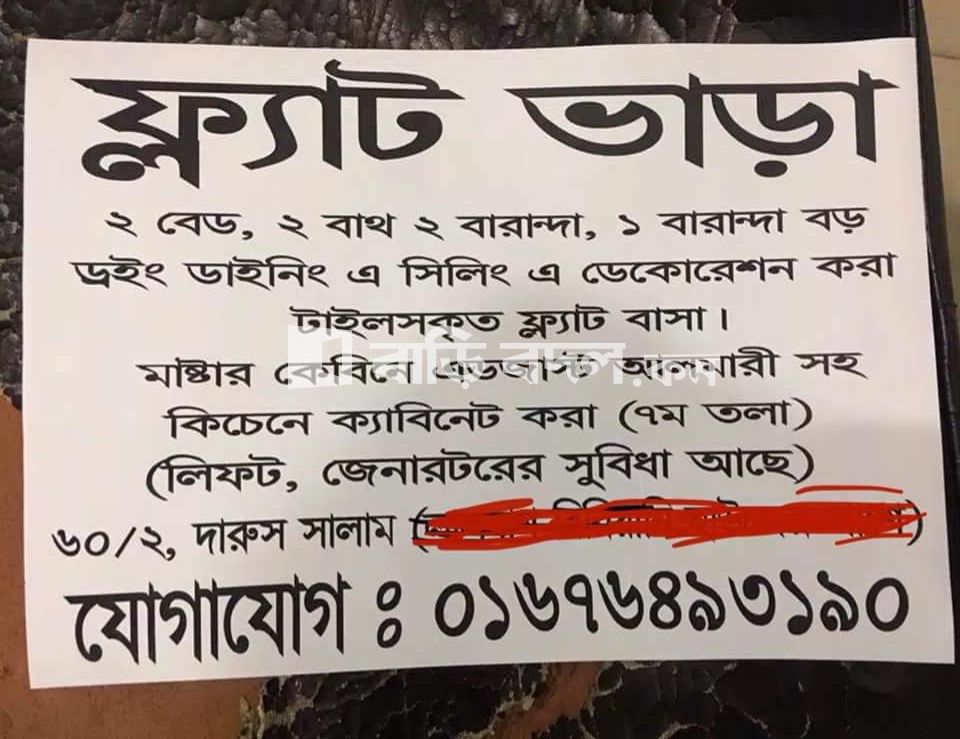 ফ্ল্যাট ভাড়া
২ বেড, ২ বাথ ২ বারান্দা, ১ বারান্দা বড়
ড্রইং ডাইনিং এ সিলিং এ ডেকোরেশন করা
টাইলসকৃত ফ্ল্যাট বাসা।
মাষ্টার কেবিনে এডজাস্ট আলমারী সহ
বাড়ি বদল.কম
কিচেনে ক্যাবিনেট করা (৭ম তলা)
(লিফট, জেনারটরের সুবিধা আছে)
৬০/২, দারুস সালাম
যোগাযোগ : ০১৬৭৬৪৯৩১৯০